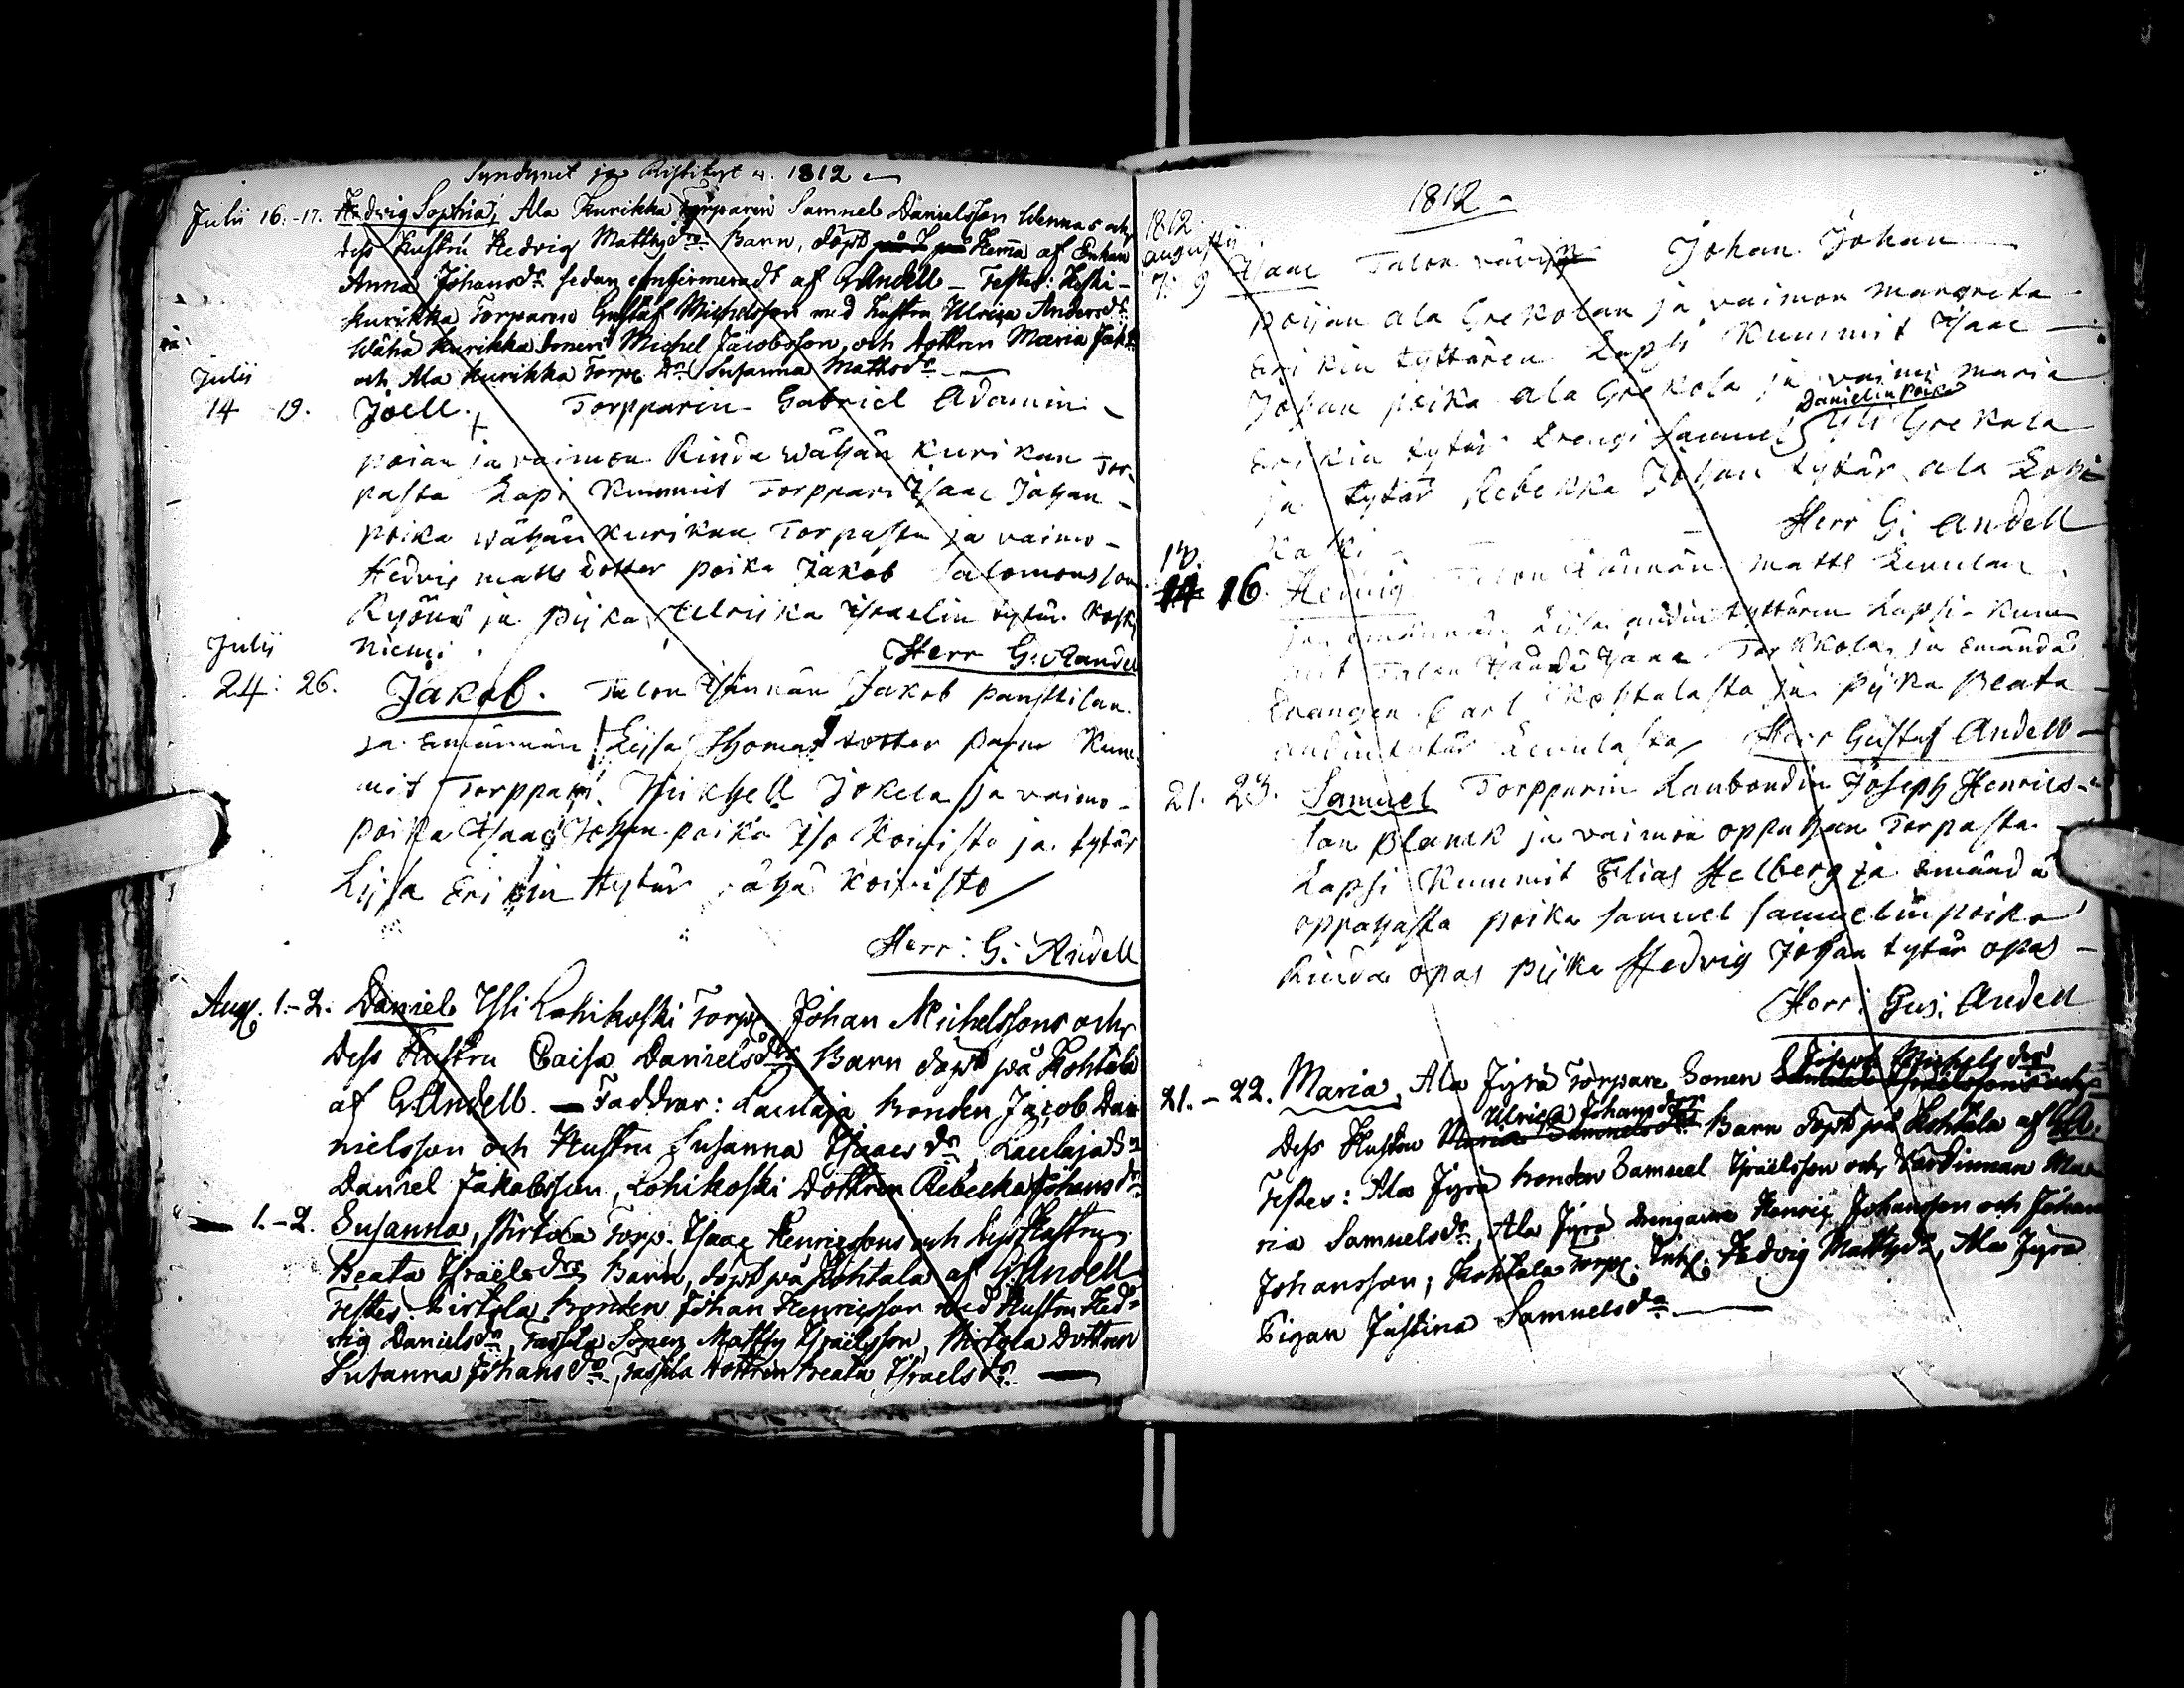 Syndynet ja Ristityt a. 1812
Julii 16.-17. Hedvig Sophia, Ala Kurikka Torparen Samuel Danielsson Wennas och
dess Hustru Hedvig Matthsdrs Barn, döpt på Hemma af Enkan
Anna Johansdr sedan confirmeradt af GAndell – Testes: Keski-
Kurikka Torparen Gustaf Michelsson med Hustru Ulrica Andersdr
Wähä Kurikka Sonen Michel Jacobsson, och dottren Maria Jak.dr
och Ala Kurikka Torp. Dr Susanna Mattsdr
Julii
14 19. Joell. Torpparin Gabriel Adamin
poian ja vaimon Rinda Wähän Kurikan Tor
pasta Lapsi Kummit Torppari Isaac Johan
poika Wähän Kurikan Torpasta ja vaimo
Hedvig matts dotter poika Jakob Salomonsson
ja Pijka Ulriika Israelin tytär Koski
Niemi.
Herr G: Andell
Julii
24: 26. Jakob. Talon Isännän Jakob panttilan
ja Emännän Lijsa Thomas dotter Parn Kum
mit Torppari. Mikhell Jokela ja vaimo
poika Isaac Johan poika Iso Koivisto ja tytär
Lijsa Erikin tytär Wähä Koivisto
Herr: G: Andell
Aug. 1.-2. Daniel Yli Lohikoski Torp. Johan Michelssons och
Dess Hustru Caisa Danielsdrs Barn döpt på Kohtala
af GAndell. — Faddrar: Laulaja bonden Jacob Da
nielsson och Hustru Susanna Isaacsdr, Laulaja Sn
Daniel Jakobsson, Lohikoski Dottren Rebecka Johansdr
— 1.-2. Susanna, Pirtola Torp. Isaac Henricssons och dess Hustru
Beata Israelsdrs Barn, döpt på Kohtala af GAndell
Testes: Pirtola bonden Johan Henricsson med Hustru Hed-
vig Danielsdr, Sonen Matths Israelsson, Pirtola Dottren
Susanna Johansdr, dottren Beata Israelsdr —
1812
1812
augusti
7. 9 Isaac Talon Johan Johan
poijan ala Grekolan ja vaimon margreta
Erikin tyttären Lapsi Kummit Isaac
Johan poika ala Grekola ja vaimo maria
Erikin tytär Drengi Samuel Danielin poika Yli Grekola
ja tytär Rebekka Johan tytär ala Lohi
Kaski
Herr G: Andell
13.
14 16. Hedvig Talon Isännän Matts Leinulan
ja Emännän Liisa andin tyttären Lapsi Kum
mit Talon Isändä Isaac Torkkola ja Emändä
Carl Kohtalasta ja Pijka Beata
andin tytär Leinulasta Herr Gustaf Andell
21. 23. Samuel Torpparin Joseph Henrics-
son Blank ja vaimon oppahan Torpasta
Lapsi Kummit Elias Helberg ja Emändä
oppahasta poika Samuel Samuelin poika
Rinda opas Pijka Hedvig Johan tytär opas
Herr: Gus: Andell
21.-22. Maria, Ala Jyrä Torpare Sonen Joseph Michelsdrs
Dess Hustru Ulrica Johansdrs Barn döpt på Kohtala af GA.
Testes: Ala Jyrä bonden Samuel Israelsson och Värdinnan Ma
ria Samuelsdr, Ala Jyrä drengarne Henric Johansson och Johan
Johansson, Kohtala Torp. Hedvig Matthsdr, Ala Jyrä
Pigan Justina Samuelsdr.